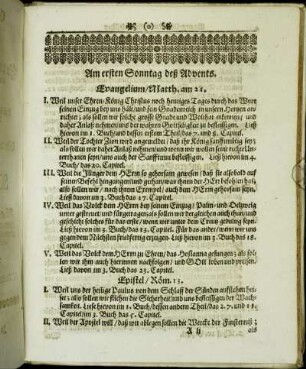 (o)
Am ersten Sonntag deß Advents.
Evangelium/Matth. am 21.
I. Weil unser Ehren-König Christus noch heutiges Tages durch das Wort
seinen Einzug bey uns hält/und sein Gnadenreich in unsern Hertzen an-
richtet: also sollen wir solche grosse Gnade und Wolthat erkennen; und
daher Anlaß nehmen uns der wahren Gottseligkeit zu befleissigen. Ließ
hievon im 1. Buch/und dessen erstem Theil/das 7. und 8. Capitel.
II. Weil der Tochter Zion wird angemeldet; daß ihr König sanfftmütig sey:
als sollen wir daher Anlaß nehmen/und wenn wir
terthanen seyn/uns auch der Sanfftmut befleissigen. Ließ hievon im 4.
Buch das 20. Capitel.
III. Weil die Jünger dem HErrn so gehorsam gewesen/daß sie alsbald auf
seinen Befehl hingegangen/und gethan/was ihnen der HErr befohlen hat;
also sollen wir/nach ihrem Exempel/auch dem HErrn gehorsam seyn.
Ließ hievon im 3. Buch das 17. Capitel.
IV. Weil das Volck dem HErrn bey seinem Einzug/Palm- und Oelzweig
unter gestreuet und
geschicht solches für das erste/wenn wir unter dem Creutz gedultig seyn.
Ließ hievon im 3. Buch das 23. Capitel. Für das ander/wann wir uns
gegen dem Nächsten friedfertig erzeigen. Ließ hievon im 3. Buch das 18.
Capitel.
V. Weil das Volck dem HErrn zu Ehren/das Hosianna gesungen; als sol-
len wir ihm auch hierinnen nachfolgen/und GOtt loben und preisen.
Ließ davon im 3. Buch das 25. Capitel.
Epistel/Röm. 13.
I. Weil uns der heilige Paulus von dem Schlaff der Sünden aufstehen hei-
set; also sollen wir fliehen die Sicherheit/und uns befleissigen der Wach-
samkeit. Liese hievon im 1. Buch/dessen andern Theil/das 2. 7. und 11.
Capitel/im 3. Buch das 5. Capitel.
II. Weil der Apostel will/daß wir ablegen sollen die Wercke der Finsterniß;
A ij
als